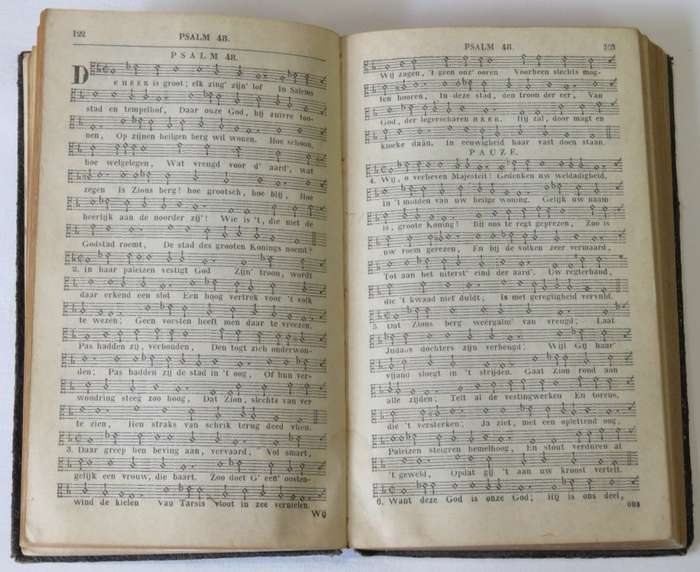 122
PSALM 48.
PSALM 48.
DE HEER is groot; elk zing' zijn' lof In Salems
stad en tempelhof, Daar onze God, bij zuivre too-
nen, Op zijnen heilgen berg wil wonen. Hoe schoon,
hoe welgelegen, Wat vreugd voor d' aard', wat
zegen Is Zions berg! hoe grootsch, hoe blij, Hoe
heerlijk aan de noorder zij'! Wie is 't, die niet de
Godstad roemt, De stad des grooten Konings noemt?
2. In haar paleizen vestigt God Zijn' troon, wordt
daar erkend een slot Een hoog vertrek voor 't volk
te wezen; Geen vorsten heeft men daar te vreezen.
Pas hadden zij, verbonden, Den togt zich onderwon-
den; Pas hadden zij de stad in 't oog, Of hun ver-
wondring steeg zoo hoog, Dat Zion, slechts van ver
te zien, Hen straks van schrik terug deed vlien.
3. Daar greep hen beving aan, vervaard, Vol smart,
gelijk een vrouw, die baart. Zoo doet G' een' oosten-
wind de kielen Van Tarsis vloot in zee vernielen.
Wij
PSALM 48.
123
Wij zagen, 't geen onz' ooren Voorheen slechts mog-
ten hooren, In deze stad, den troon der eer, Van
God, der legerscharen HEER. Hij zal, door magt en
kloeke daân, In eeuwigheid haar vast doen staan.
PAUZE.
4. Wij, o verheven Majesteit! Gedenken uw weldadigheid,
In 't midden van uw heilige woning. Gelijk uw naam
is, groote Koning! Bij ons te regt geprezen, Zoo is
uw roem gerezen, En bij de volken zeer vermaard,
Tot aan het uiterst' eind der aard'. Uw regterhand,
die 't kwaad niet duldt, Is met geregtigheid vervuld.
5. Dat Zions berg weergalm' van vreugd; Laat
Judaas dochters zijn verheugd; Wijl Gij haar'
vijand sloegt in 't strijden. Gaat Zion rond aan
alle zijden; Telt al de vestingwerken En torens,
die 't versterken. Ja ziet, met een oplettend oog,
Paleizen steigren hemelhoog, En stout verduren al
't geweld, Opdat gij 't aan uw kroost vertelt.
6. Want deze God is onze God; Hij is ons deel,
ons